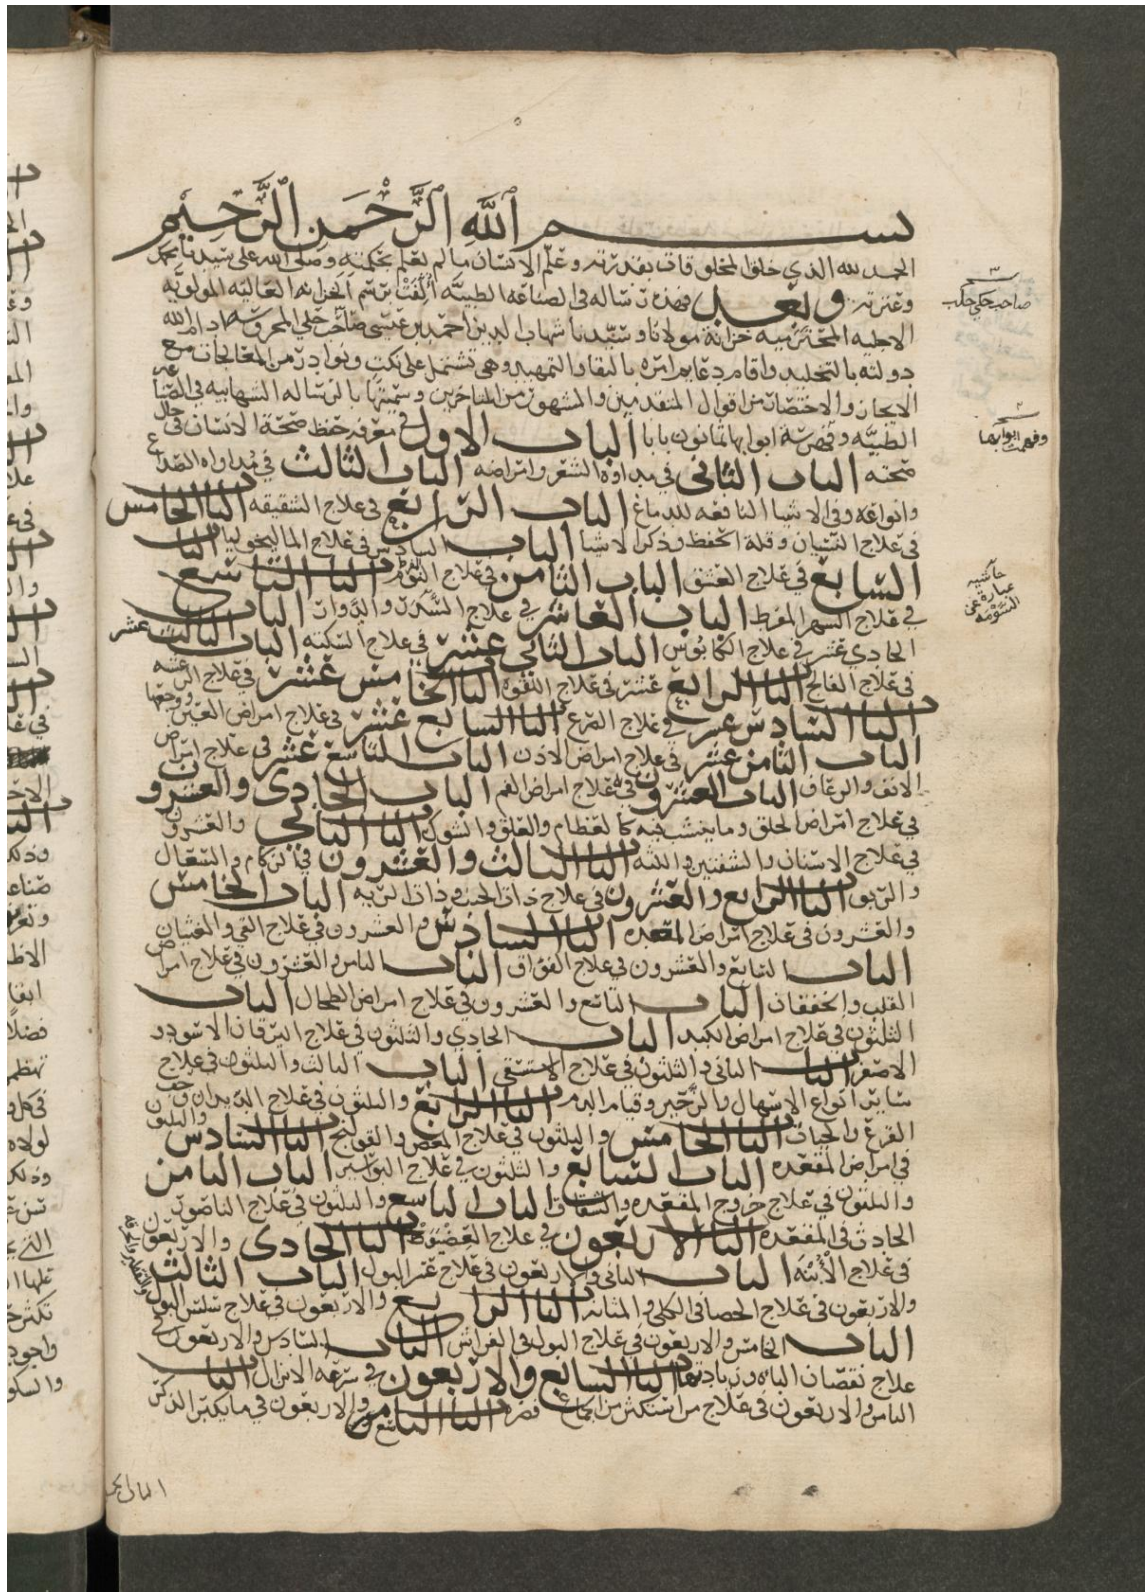 بسم الله الرحمن الرحيم
الحمد لله الذي خلق المخلوقات بقدرته وعلم الانسان ما لم يعلم بحكمته وصلى الله على سيدنا محمد
وعترته وبعد فهذه رساله فى الصناعه الطبيه ألفت برسم الخزانه العاليه المولويه
الاجليه المحترميه خزانة مولانا وسيدنا شهاب الدين احمد بن عيسى صاحب حلي المحروسه ادام الله
دولته بالتخليد واقام دعايم امره بالبقا والتمهيد وهى تشتمل على نكت ونوادر من المعالجات مع
الايجاز والاختصار من اقوال المتقدمين والمشهور من المتاخرين وسميتها بالرساله الشهابيه فى الصناعه
الطبيه وفهرسة ابوابها ثمانون بابا الباب الاول فى معرفه حفظ صحة الانسان فى حال
صحته الباب الثانى في مداواة الشعر وامراضه الباب الثالث في مداواه الصداع
وانواعه وفى الاشيا النافعه للدماغ الباب الرابع فى علاج الشقيقه الباب الخامس
فى علاج النسيان وقلة الحفظ وذكر الاشيا الباب السادس فى علاج الماليخوليا الباب
السابع في علاج العشق الباب الثامن فى علاج النوم الباب التاسع
في علاج السهر المفرط الباب العاشر في علاج السدر والدوار الباب
الحادي عشر في علاج الكابوس الباب الثاني عشر فى علاج السكته الباب الثالث عشر
فى علاج الفالج الباب الرابع عشر فى علاج اللقوه الباب الخامس عشر فى علاج الرعشه
الباب السادس عشر في علاج الصرع الباب السابع عشر فى علاج امراض العين ووجعها
الباب الثامن عشر فى علاج امراض الاذن الباب التاسع عشر فى علاج امراض
الانف والرعاف الباب العشرون فى علاج امراض الفم الباب الحادى والعشرون
في علاج امراض الحلق وما ينشب فيه كالعظام والعلق والشوك الباب الثاني والعشرون
فى علاج الاسنان والشفتين واللثه الباب الثالث والعشرون فى الزكام والسعال
والربو الباب الرابع والعشرون فى علاج ذات الجنب وذات الريه الباب الخامس
والعشرون فى علاج امراض المعده الباب السادس والعشرون فى علاج القي والغثيان
الباب السابع والعشرون في علاج الفواق الباب الثامن والعشرون فى علاج امراض
القلب والخفقان الباب التاسع والعشرون فى علاج امراض الطحال الباب
الثلثون فى علاج امراض الكبد الباب الحادي والثلثون فى علاج اليرقان الاسود و
الاصفر الباب الثانى والثلثون فى علاج الاستسقى الباب الثالث والثلثون فى علاج
ساير انواع الاسهال والزحير وقيام الدم الباب الرابع والثلثون فى علاج الديدان وحب
القرع والحيات الباب الخامس والثلثون في علاج المغص والقولنج الباب السادس والثلثون
فى امراض المقعده الباب السابع والثلثون في علاج البواسير الباب الثامن
والثلثون في علاج خروج المقعده والشقاق الباب التاسع والثلثون فى علاج الناصور
الحادث فى المقعده الباب الاربعون في علاج العضيوط الباب الحادى والاربعون
فى علاج الأبنه الباب الثانى والاربعون فى علاج عسر البول الباب الثالث
والاربعون فى علاج الحصا فى الكلى والمثانه الباب الرابع والاربعون فى علاج سلس البول
الباب الخامس والاربعون فى علاج البول فى الفراش الباب السادس والاربعون في
علاج نقصان الباه وزيادتها الباب السابع والاربعون في سرعه الانزال الباب
الثامن والاربعون فى علاج من استكثر من الجماع الباب التاسع والاربعون فى ما يكبر الذكر
صاحب حلي
وفهرست ابوابها
حاشيه
عبارة عن